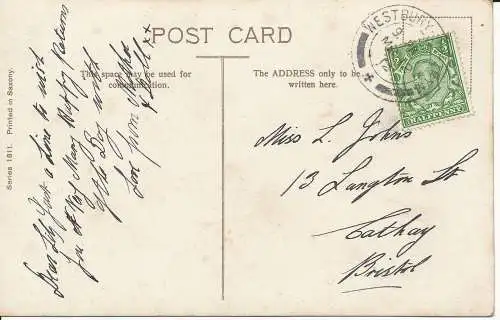 POST CARD
This space may be used for
communication.
The ADDRESS only to be
written here.
Series 1811. Printed in Saxony.
Dear Lily Just a Line to wish
you Many Happy Returns
of the Day with
Love from
xx
WESTBURY
HALFPENNY
Miss L. Johns
13 Langton St
Cathay
Bristol